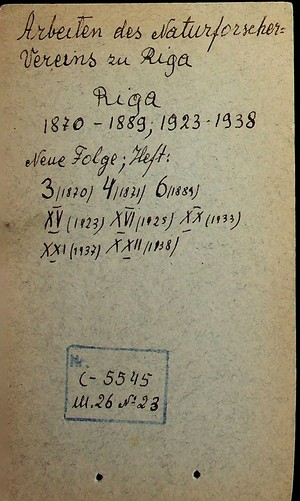 Arbeiten des Naturforscher=
Vereins zu Riga
Riga
1870 - 1889, 1923 - 1938
Neue Folge; Heft:
3 (1870) 4 (1871) 6 (1889)
XV (1923) XVI (1925) XX (1933)
XXI (1937) XXII (1938)
№.
C - 5545
Ш. 26 № 23